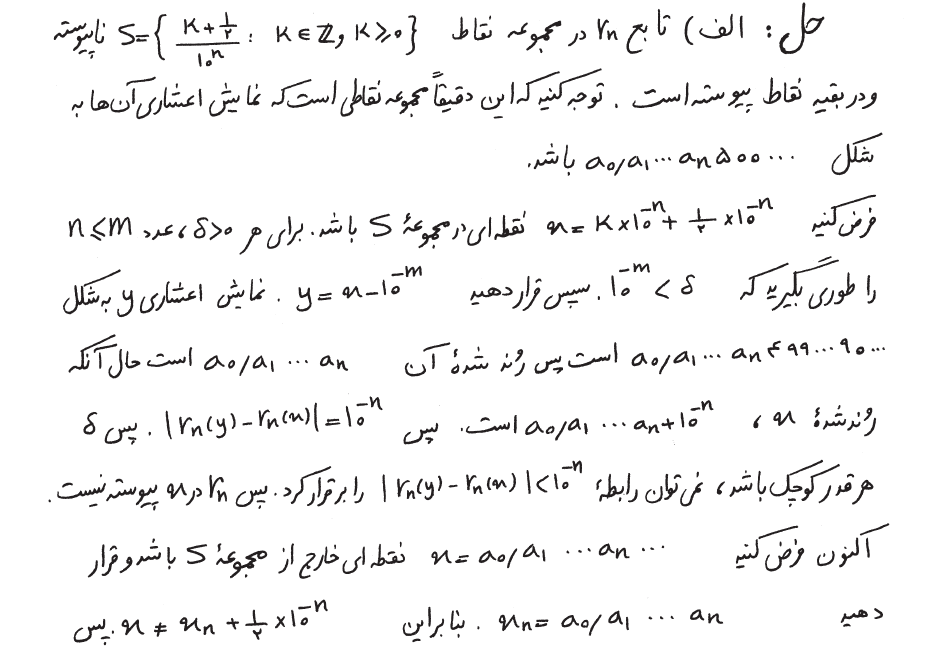 حل: الف) تابع rₙ در مجموعه نقاط S={ (K+½)/10ⁿ : K∈ℤ و K⩾0 } ناپیوسته
و در بقیه نقاط پیوسته است. توجه کنید که این دقیقاً مجموعه نقاطی است که نمایش اعشاری آن‌ها به
شکل a₀/a₁⋯aₙ۵۰۰⋯ باشد.
فرض کنید x=K×10⁻ⁿ+½×10⁻ⁿ نقطه‌ای در مجموعهٔ S باشد. برای هر δ>0، عدد n⩽m
را طوری بگیرید که 10⁻ᵐ<δ. سپس قرار دهید y=x-10⁻ᵐ. نمایش اعشاری y به شکل
a₀/a₁⋯aₙ۴۹۹⋯۹۰⋯ است پس رُند شدهٔ آن a₀/a₁⋯aₙ است حال آنکه
رُند شدهٔ x، a₀/a₁⋯aₙ+10⁻ⁿ است. پس |rₙ(y)-rₙ(x)|=10⁻ⁿ. پس δ
هر قدر کوچک باشد، نمی‌توان رابطهٔ |rₙ(y)-rₙ(x)|<10⁻ⁿ را برقرار کرد. پس rₙ در x پیوسته نیست.
اکنون فرض کنید x=a₀/a₁⋯aₙ⋯ نقطه‌ای خارج از مجموعهٔ S باشد و قرار
دهید xₙ=a₀/a₁⋯aₙ. بنابراین x≠xₙ+½×10⁻ⁿ. پس